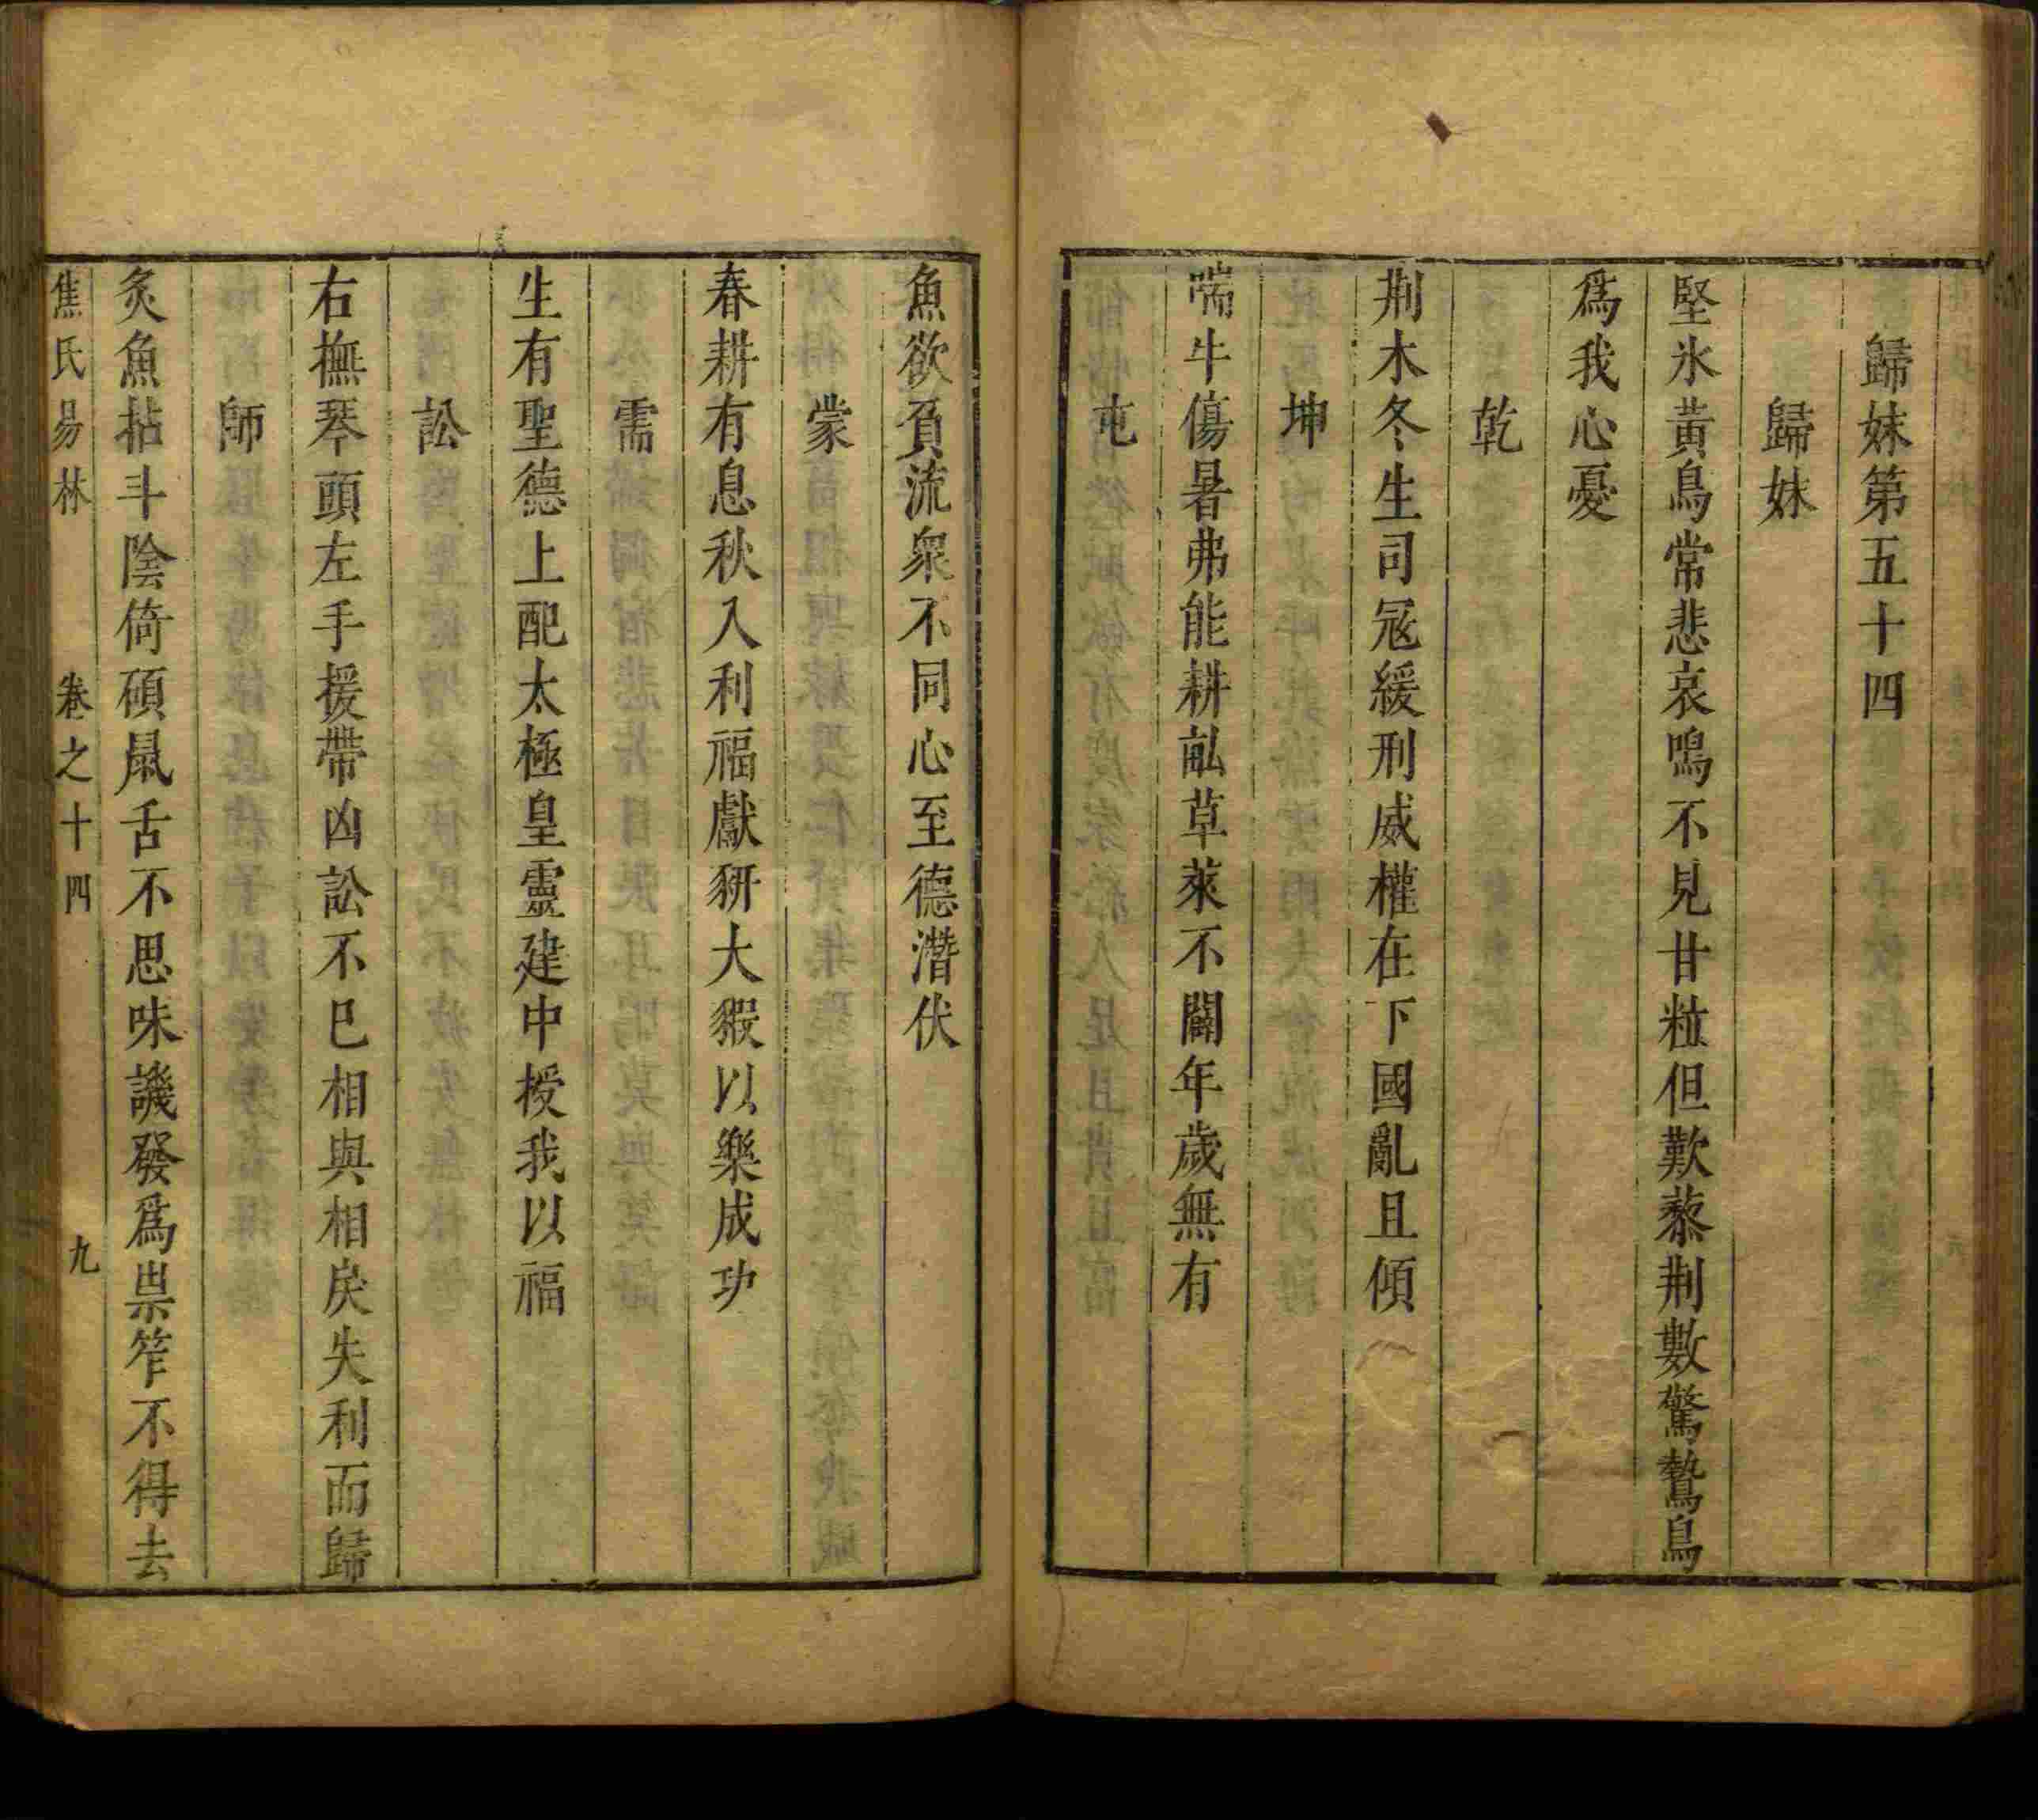 歸妹第五十四
歸妹
堅氷黃鳥常悲哀鳴不見甘粒但歎藜荆數驚鷙鳥
爲我心憂
乾
荆木冬生司冦緩刑威權在下國亂且傾
坤
喘牛傷暑弗能耕畝草萊不闢年歲無有
屯
魚欲負流衆不同心至德潛伏
蒙
春耕有息秋入利福獻豜大豭以樂成功
需
生有聖德上配太極皇靈建中授我以福
訟
右撫琴頭左手援帶凶訟不已相與相戾失利而歸
師
炙魚枯斗陰倚碩鼠舌不思味譏發爲祟笮不得去
焦氏易林 卷之十四 九